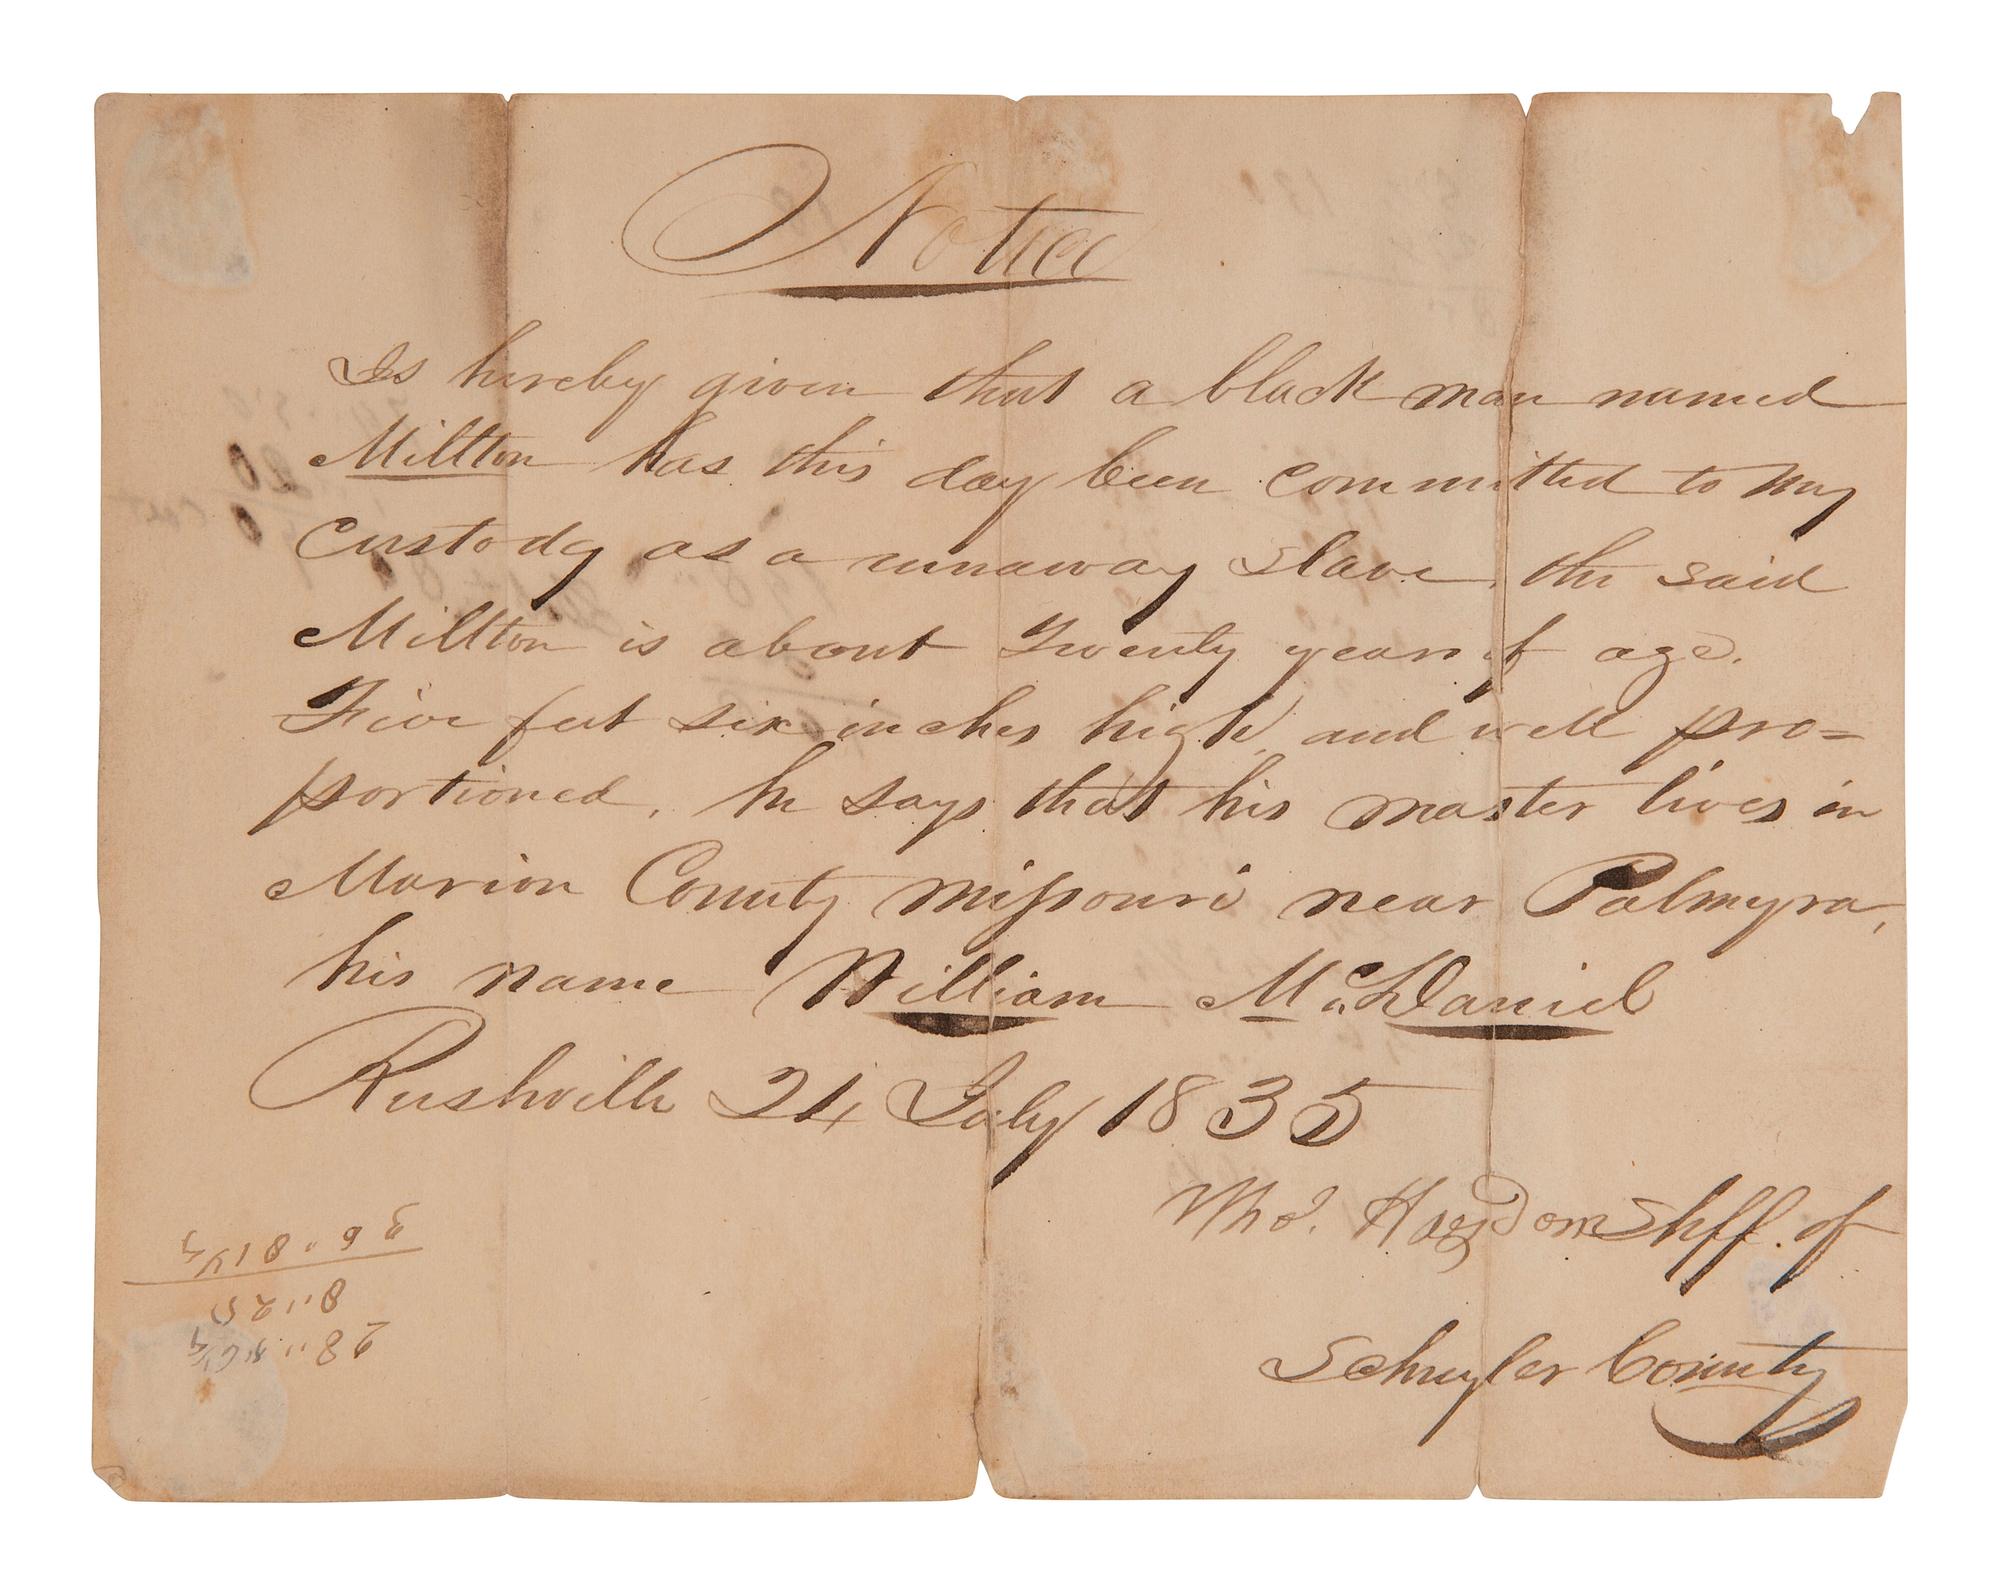 Notice
Is hereby given that a black man named
Millton has this day been committed to my
Custody as a runaway Slave, the said
Millton is about Twenty years of age.
Five feet six inches high, and well pro=
portioned. he says that his master lives in
Marion County Missouri near Palmyra,
his name William McDaniel
Rushville 24 July 1835
Tho.s Haydon Shff. of
Schuyler County
28 "
8 " 25
36 " 81 1/4